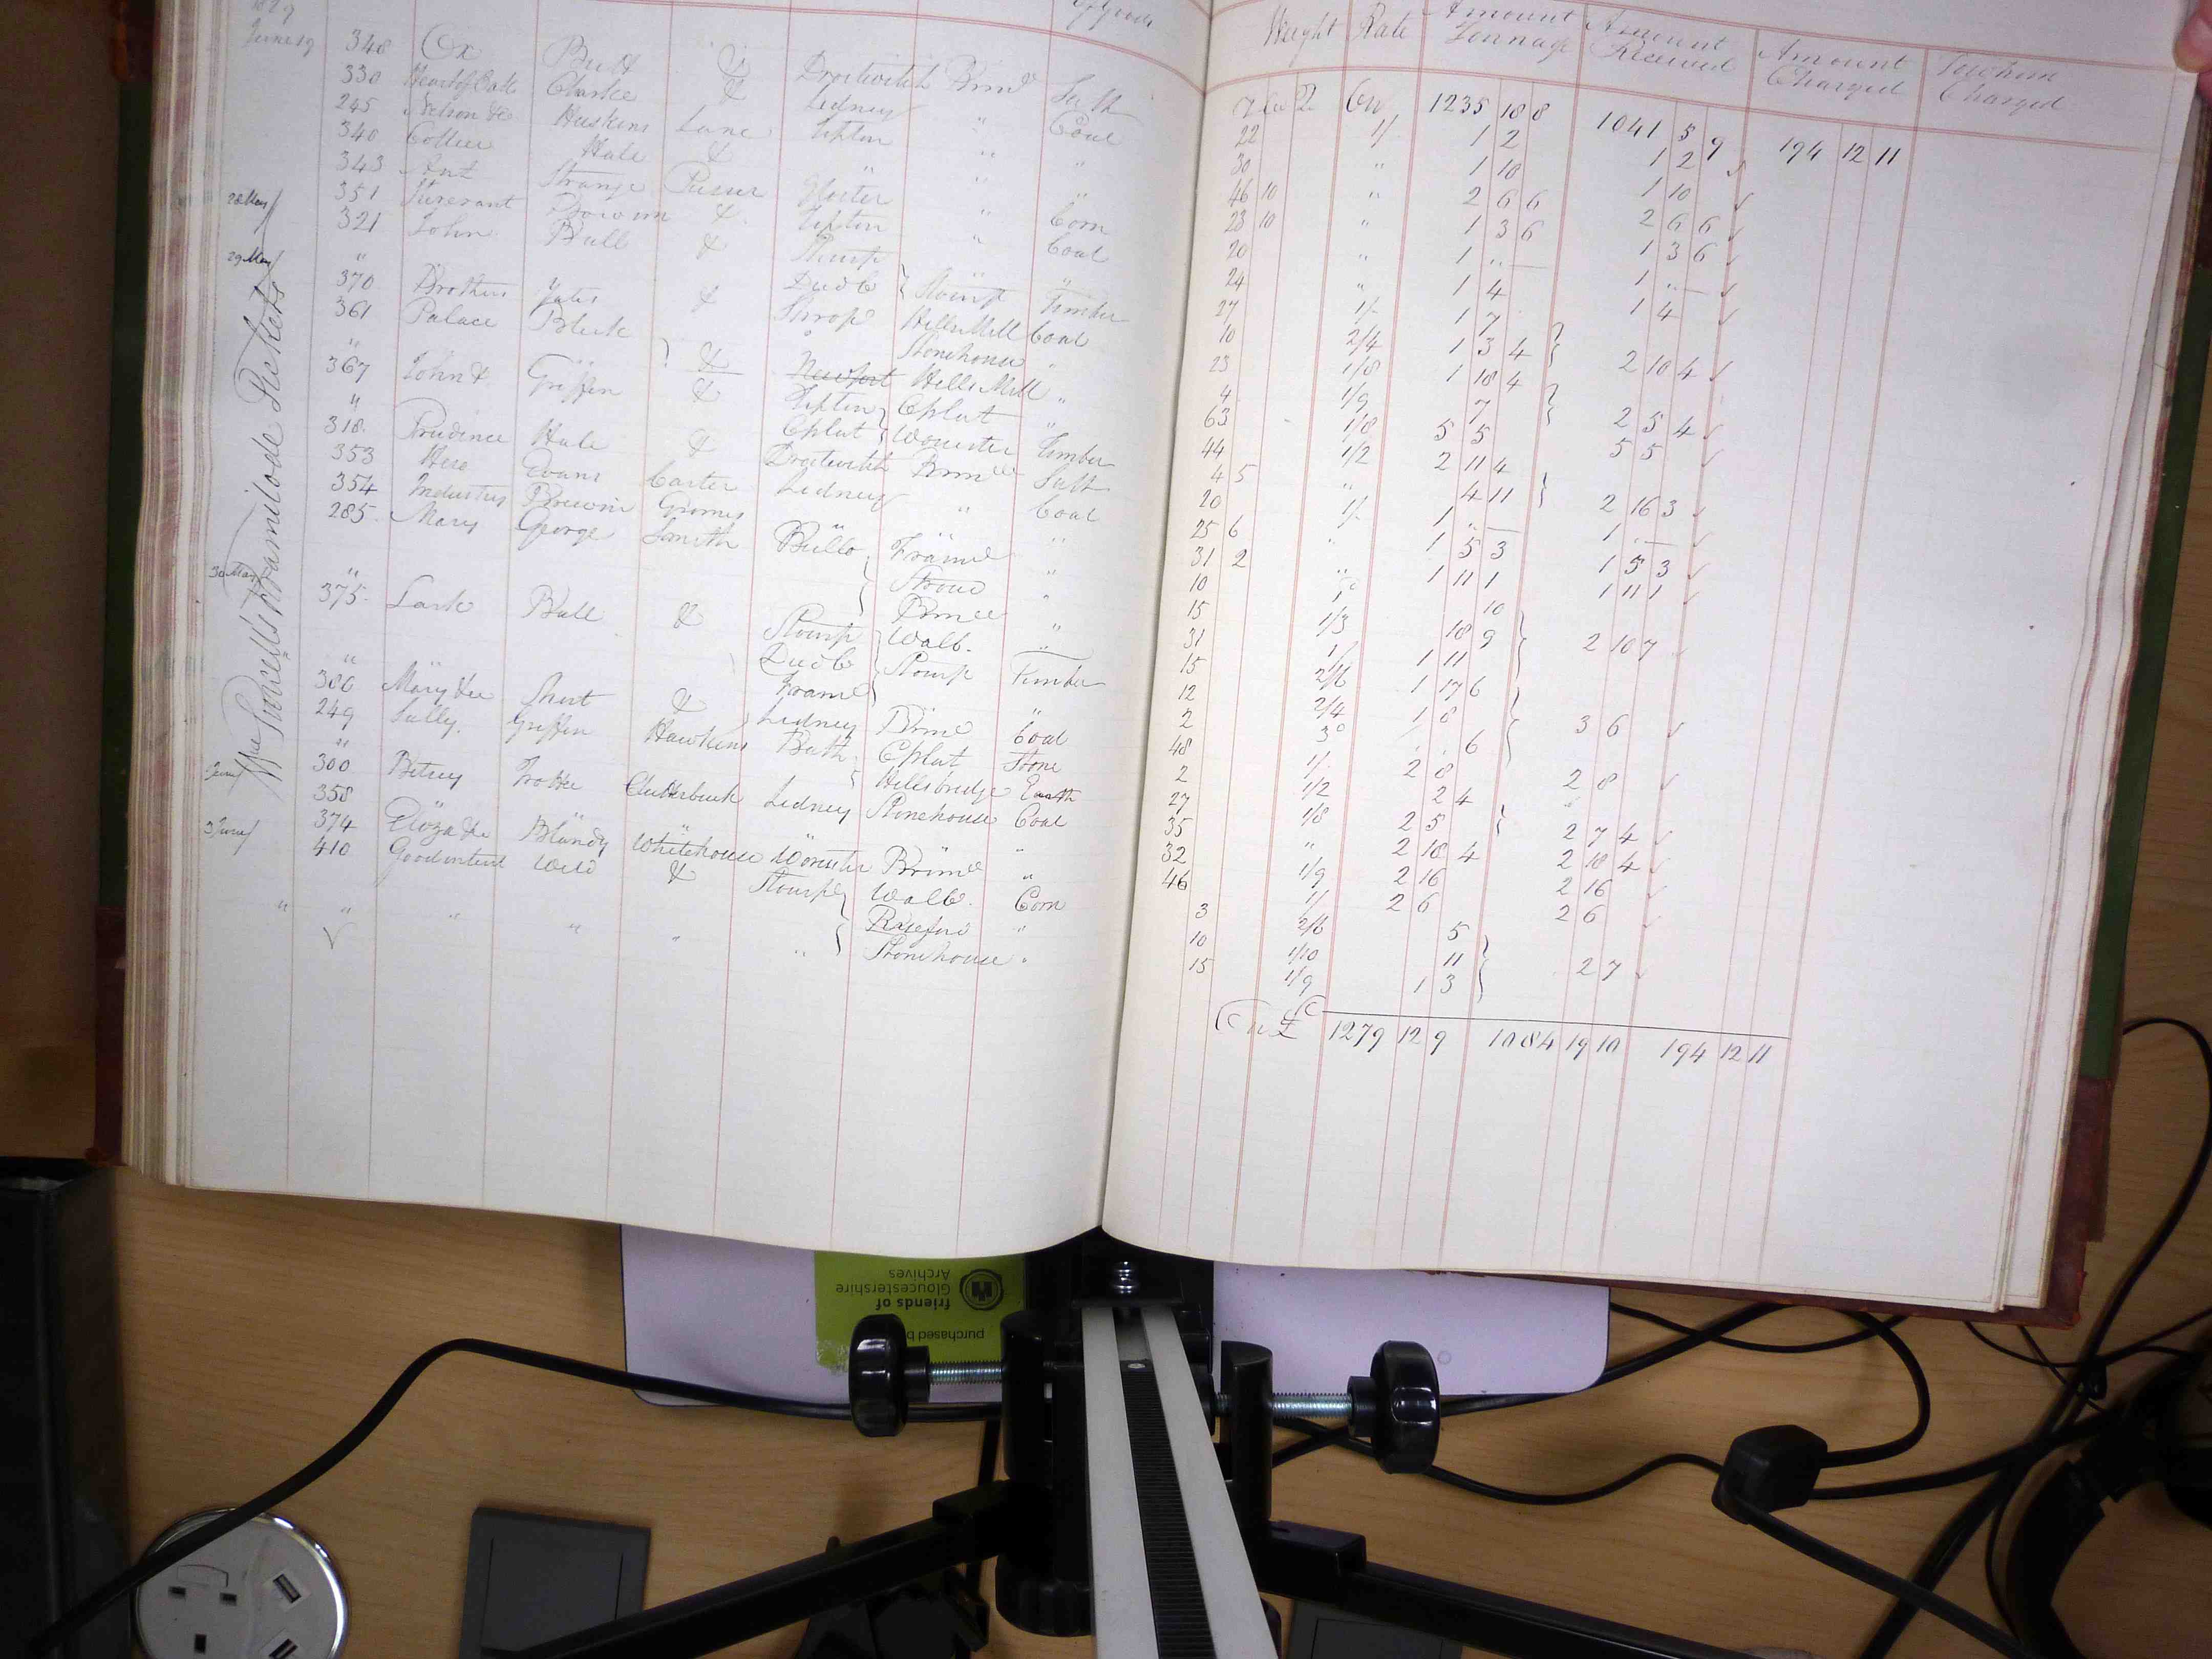 1829 of Goods Weight Rate Amount Tonnage Amount Received Amount Charged To whom Charged
June 19 348 Ox Butt & Droitwitch Brimd Salt
330 Heart of Oak Clarke & Lidney " Coal
245 Nelson &c Huskins Lane Tipton " "
340 Collier Hale & " "
343 Ant Strange Purser Gloster " Corn
28 May 351 Steverant & Tipton " Coal
321 John Bull & Stourp "
29 May " Dudb Stourp Timber
370 Brothers Yates & Shrop Hills Mill Coal
361 Palace Bleck " Stonehouse "
" & Newport Hills Mill "
367 John & Griffin & Tipton Cplat "
" Cplat Worcester Timber
318 Prudence Hale & Droitwitch Brimd Salt
353 Hero Evans Carter Lidney " Coal
354 Industry Browning Groms " " "
285 Mary George Smith Bullo Framd "
30 May " Stroud "
375 Lark Ball & Brimd "
Stourp Walb. "
Dudb Stourp Timber
" Framd "
386 Mary &c Shut & Lidney Brimd Coal
249 Sally Griffin Hawkins Bath Cplat Stone
" Hillsbridge Earth
June 300 Betsey Trotter Clutterbuck Lidney Stonehouse Coal
358 " " " " "
3 June 374 Eliza &c Blandy Whitehouse Worcester Brimd "
410 Goodintent Weld & Stourp Walb. Corn
" " " " " Ryeford "
" Stonehouse "
Wm Purnells Framilode Tickets
Cw 1235 18 8 1041 5 9 194 12 11
22 1/ 1 2 1 2
30 " 1 10 1 10
46 10 " 2 6 6 2 6 6
23 10 " 1 3 6 1 3 6
20 " 1 " — 1 " —
24 " 1 4 1 4
27 1/ 1 7
10 2/4 1 3 4 2 10 4
23 1/8 1 18 4
4 1/9 7 2 5 4
63 1/8 5 5 5 5
44 1/2 2 11 4
4 5 " 4 11 2 16 3
20 1/ 1 " — 1 " —
25 6 " 1 5 3 1 5 3
31 2 " 1 11 1 1 11 1
10 1 10
15 1/3 18 9 2 10 7
31 1/ 1 11
15 2/6 1 17 6
12 2/4 1 8 3 6
2 3d 6
48 1/ 2 8 2 8
2 1/2 2 4
27 1/8 2 5 2 7 4
35 " 2 18 4 2 18 4
32 1/9 2 16 2 16
46 1/ 2 6 2 6
3 2/6 5
10 1/10 11 2 7
15 1/9 1 3
£ 1279 12 9 1084 19 10 194 12 11
purchased b
friends of
Gloucestershire
Archives